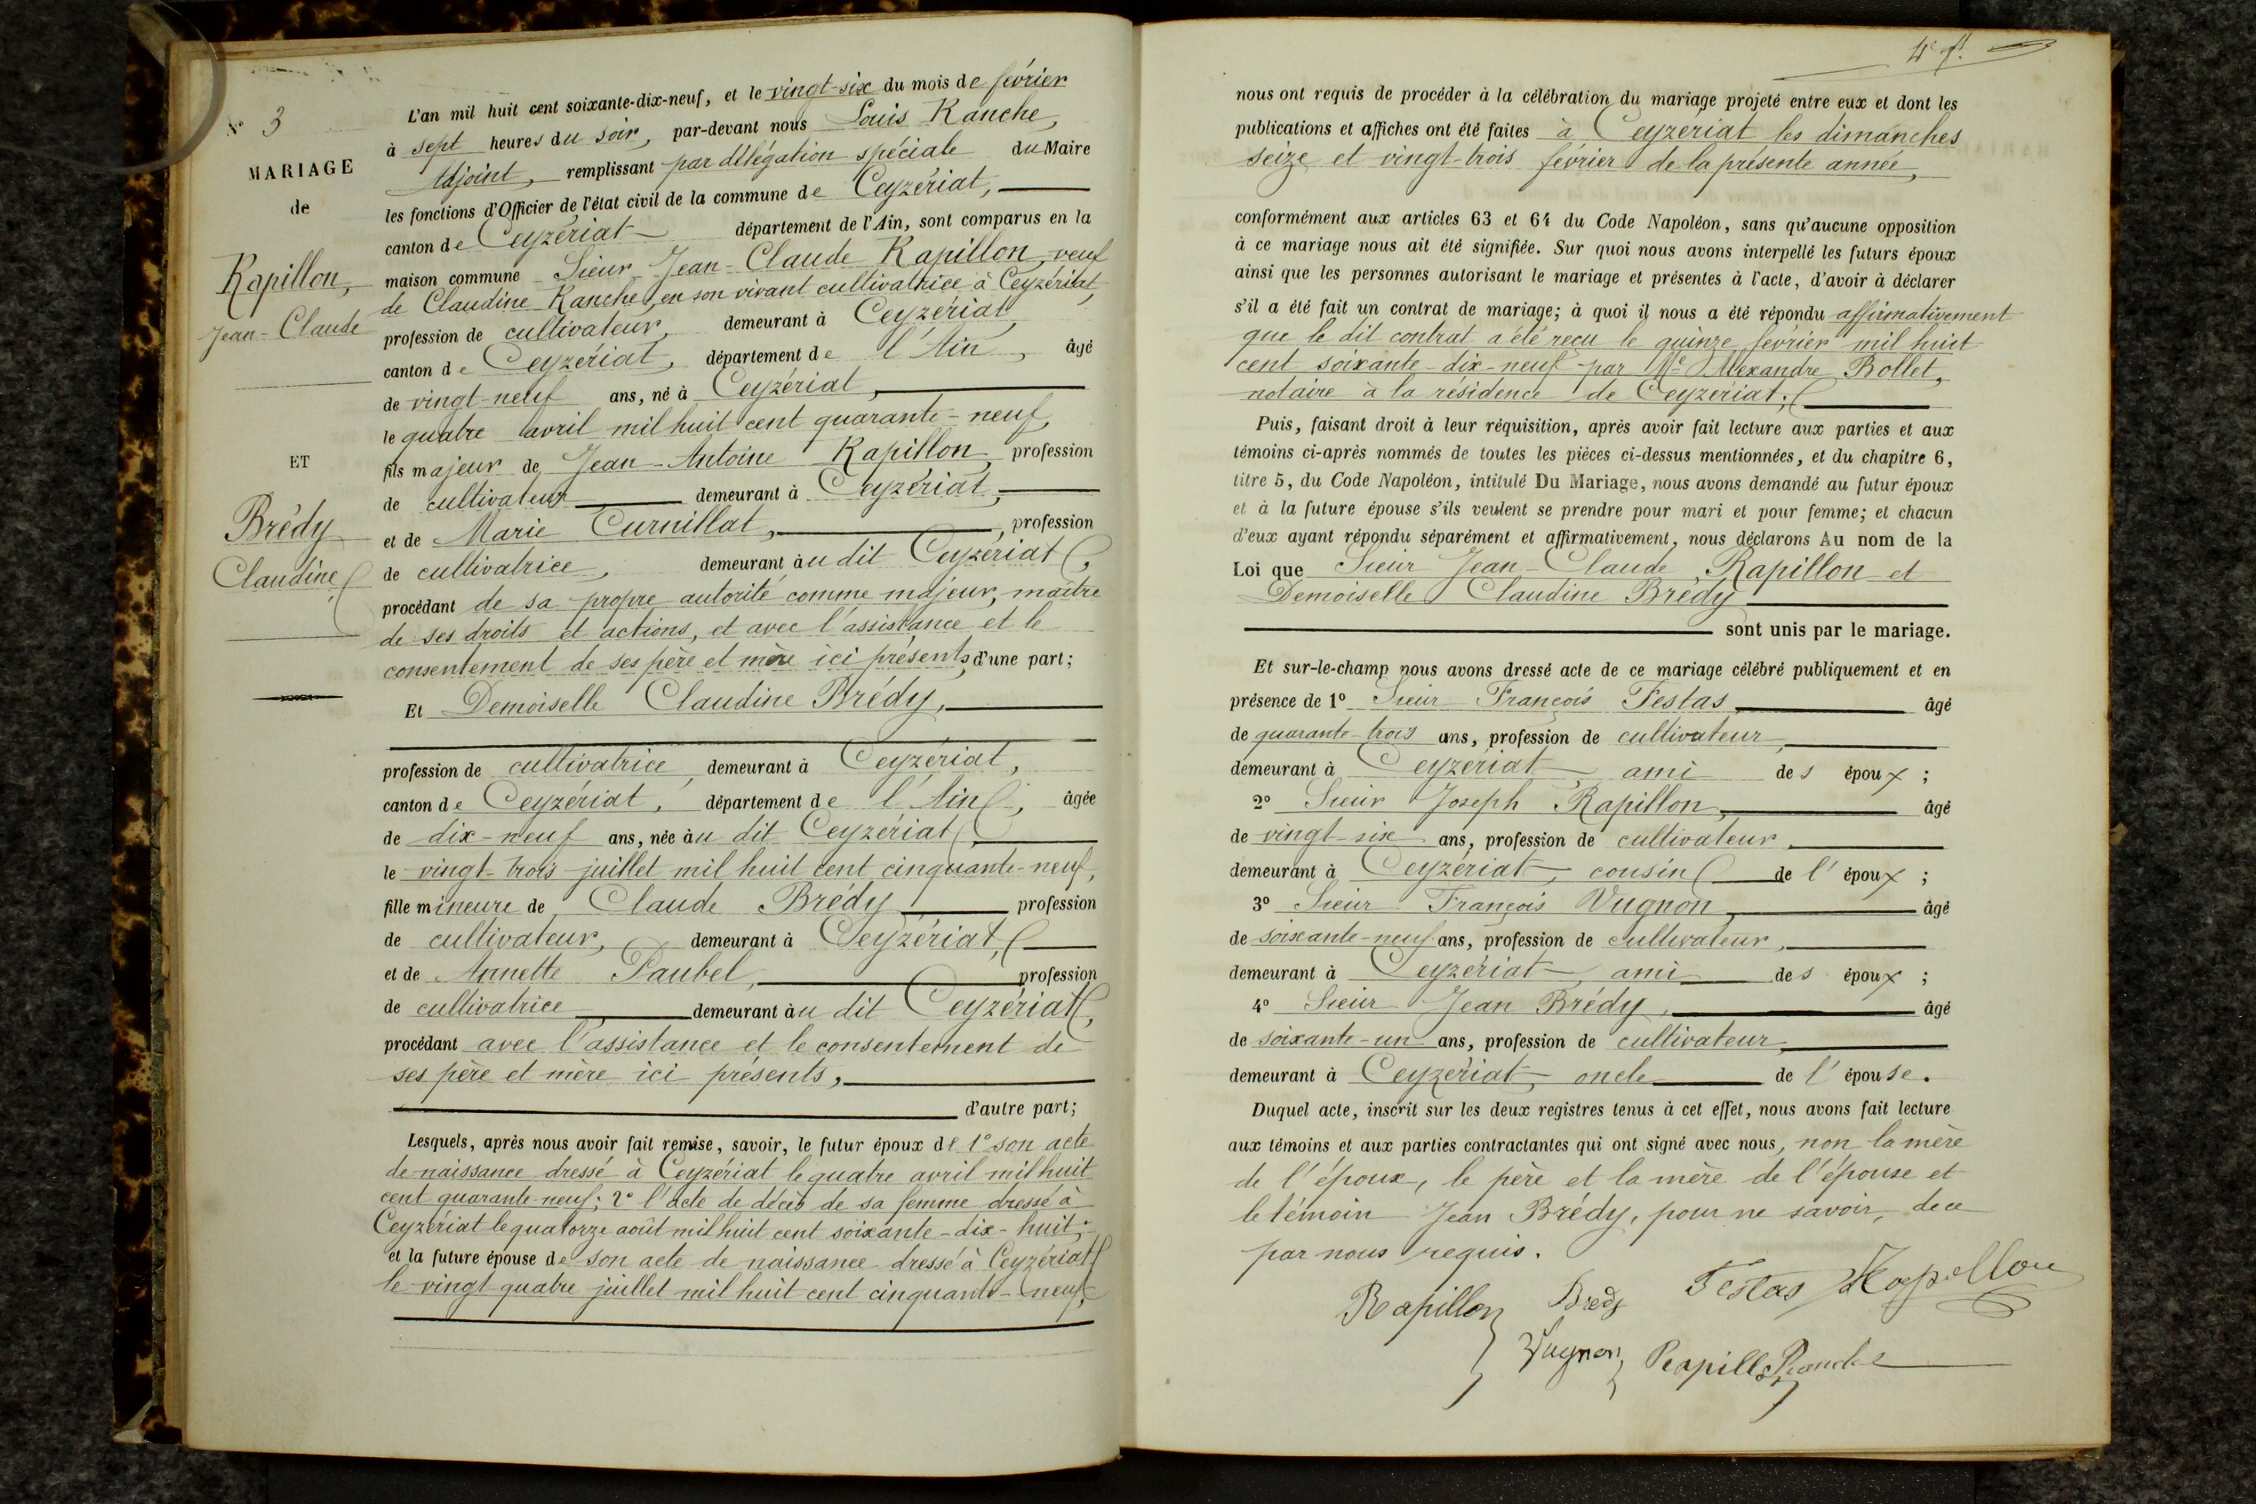 N° 3
MARIAGE
de
Rapillon,
Jean-Claude
ET
Brédy
Claudine
L'an mil huit cent soixante-dix-neuf, et le vingt-six du mois de février
à sept heures du soir, par-devant nous Louis Ranche,
Adjoint, remplissant par délégation spéciale du Maire
les fonctions d'Officier de l'état civil de la commune de Ceyzériat,
canton de Ceyzériat département de l'Ain, sont comparus en la
maison commune Sieur Jean-Claude Rapillon, veuf
de Claudine Ranche, en son vivant cultivatrice à Ceyzériat,
profession de cultivateur, demeurant à Ceyzériat,
canton de Ceyzériat, département de l'Ain, âgé
de vingt-neuf ans, né à Ceyzériat,
le quatre avril mil huit cent quarante-neuf,
fils majeur de Jean-Antoine Rapillon, profession
de cultivateur demeurant à Ceyzériat,
et de Marie Curnillat, profession
de cultivatrice, demeurant au dit Ceyzériat,
procédant de sa propre autorité comme majeur, maître
de ses droits et actions, et avec l'assistance et le
consentement de ses père et mère ici présents, d'une part;
Et Demoiselle Claudine Brédy,
profession de cultivatrice, demeurant à Ceyzériat,
canton de Ceyzériat, département de l'Ain, âgée
de dix-neuf ans, née au dit Ceyzériat,
le vingt-trois juillet mil huit cent cinquante-neuf,
fille mineure de Claude Brédy profession
de cultivateur, demeurant à Ceyzériat,
et de Annette Paubel, profession
de cultivatrice demeurant au dit Ceyzériat,
procédant avec l'assistance et le consentement de
ses père et mère ici présents,
d'autre part;
Lesquels, après nous avoir fait remise, savoir, le futur époux de 1° son acte
de naissance dressé à Ceyzériat le quatre avril mil huit
cent quarante-neuf; 2° l'acte de décès de sa femme dressé à
Ceyzériat le quatorze août mil huit cent soixante-dix-huit;
et la future épouse de son acte de naissance dressé à Ceyzériat
le vingt-quatre juillet mil huit cent cinquante-neuf,
4e ft.
nous ont requis de procéder à la célébration du mariage projeté entre eux et dont les
publications et affiches ont été faites à Ceyzériat les dimanches
seize et vingt-trois février de la présente année,
conformément aux articles 63 et 64 du Code Napoléon, sans qu'aucune opposition
à ce mariage nous ait été signifiée. Sur quoi nous avons interpellé les futurs époux
ainsi que les personnes autorisant le mariage et présentes à l'acte, d'avoir à déclarer
s'il a été fait un contrat de mariage; à quoi il nous a été répondu affirmativement
que le dit contrat a été reçu le quinze février mil huit
cent soixante-dix-neuf par Me Alexandre Bollet,
notaire à la résidence de Ceyzériat;
Puis, faisant droit à leur réquisition, après avoir fait lecture aux parties et aux
témoins ci-après nommés de toutes les pièces ci-dessus mentionnées, et du chapitre 6,
titre 5, du Code Napoléon, intitulé Du Mariage, nous avons demandé au futur époux
et à la future épouse s'ils veulent se prendre pour mari et pour femme; et chacun
d'eux ayant répondu séparément et affirmativement, nous déclarons Au nom de la
Loi que Sieur Jean-Claude Rapillon et
Demoiselle Claudine Brédy
sont unis par le mariage.
Et sur-le-champ nous avons dressé acte de ce mariage célébré publiquement et en
présence de 1° Sieur François Festas, âgé
de quarante-trois ans, profession de cultivateur,
demeurant à Ceyzériat, ami des époux ;
2° Sieur Joseph Rapillon, âgé
de vingt-six ans, profession de cultivateur,
demeurant à Ceyzériat, cousin de l'époux ;
3° Sieur François Vugnon, âgé
de soixante-neuf ans, profession de cultivateur,
demeurant à Ceyzériat, ami des époux ;
4° Sieur Jean Brédy, âgé
de soixante-un ans, profession de cultivateur,
demeurant à Ceyzériat, oncle de l'épouse.
Duquel acte, inscrit sur les deux registres tenus à cet effet, nous avons fait lecture
aux témoins et aux parties contractantes qui ont signé avec nous, non la mère
de l'époux, le père et la mère de l'épouse et
le témoin Jean Brédy, pour ne savoir, de ce
par nous requis.
Rapillon Bredy Festas Rapillon
Vugnon Rapillon Ranche